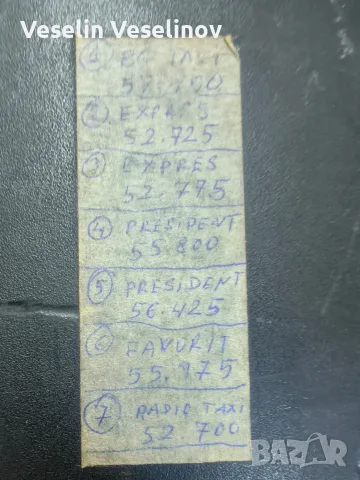 Veselin Veselinov
1
2 EXPRES
52.725
3 EXPRES
52.775
4 PRESIDENT
55.800
5 PRESIDENT
56.425
6 FAVURIT
55.975
7 RADIO TAXI
52 700
BAZAR